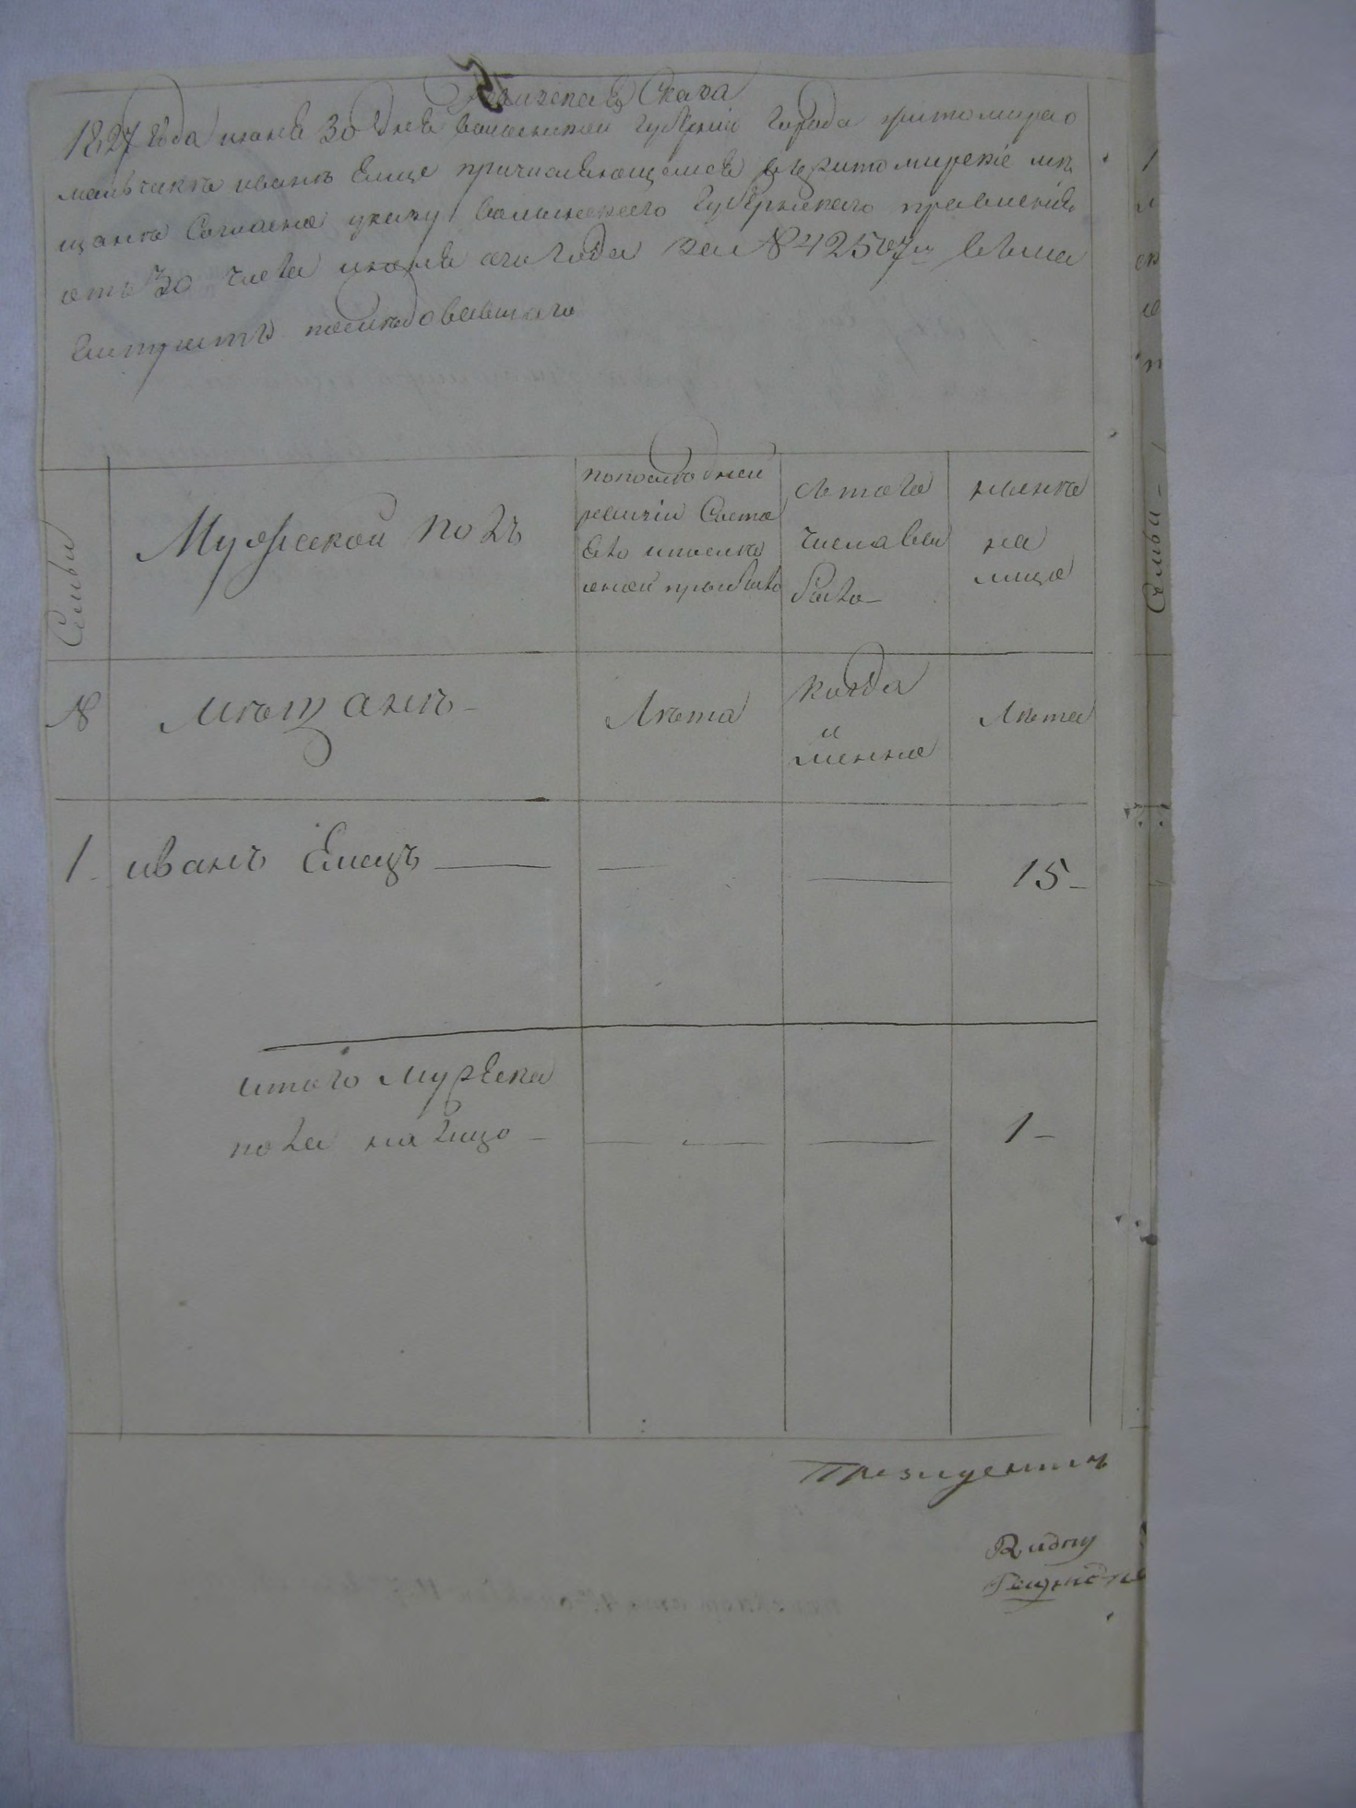 Ревизская Сказка
1827 года июня 30 дня волынской губернии города житомира о
мальчике иване Емце причисляющемся въ житомирские мѣ
щане Согласно указу волынского Губернского правления
отъ 30 числа июня сего года за № 42507м въ магистратъ
последовавшаго
Семьи
Мужеской полъ
по последней
ревизии Состо
яло и после
оной прибыло
Изъ того
числа вы
было
ныне
на
лицо
№
Мѣщанъ
Лѣта
Когда
и
менно
Лѣта
1 иванъ Емецъ — — — 15
итого мужеска
пола на лицо — — — 1
Президентъ